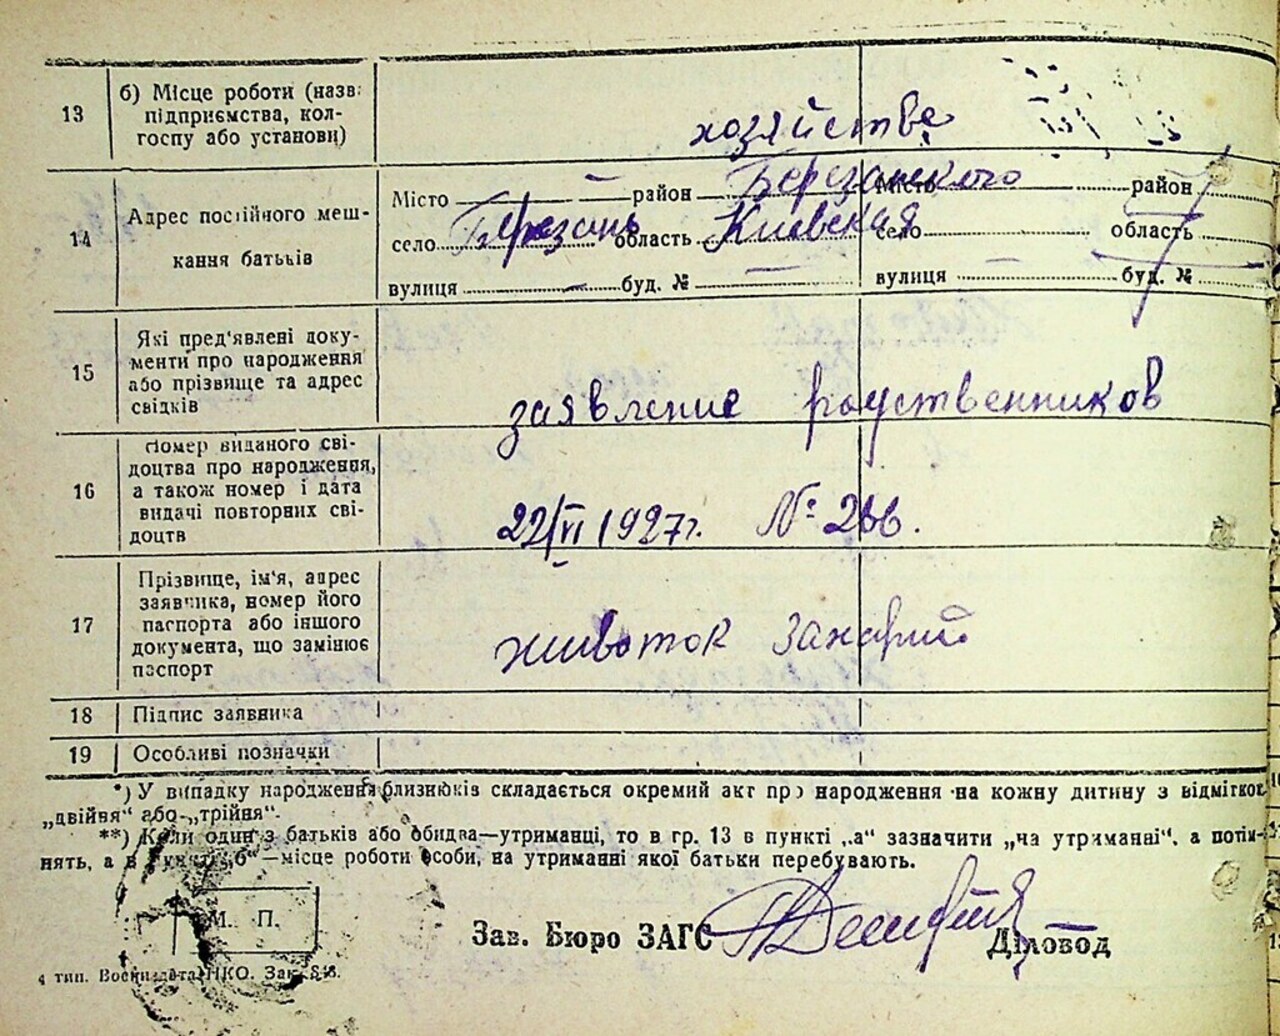 13
б) Місце роботи (назва
підприємства, кол-
госпу або установи)
хозяйстве
14
Адрес постійного меш-
кання батьків
Місто — район Березанского Місто район
село Березань область Киевская село область
вулиця — буд. № — вулиця — буд. №
15
Які пред'явлені доку-
менти про народження
або прізвище та адрес
свідків
заявление родственников
16
Номер виданого сві-
доцтва про народження,
а також номер і дата
видачі повторних сві-
доцтв
22/VI 1927г. № 266.
17
Прізвище, ім'я, адрес
заявника, номер його
паспорта або іншого
документа, що замінює
паспорт
Животок Захарий
18 Підпис заявника
19 Особливі позначки
*) У випадку народження близнюків складається окремий акт про народження на кожну дитину з відміткою
„двійня" або „трійня".
**) Коли один з батьків або обидва—утриманці, то в гр. 13 в пункті „а" зазначити „на утриманні", а потім
нять, а в „б"—місце роботи особи, на утриманні якої батьки перебувають.
М. П.
Зав. Бюро ЗАГС Діловод
4 тип. НКО. Зак.